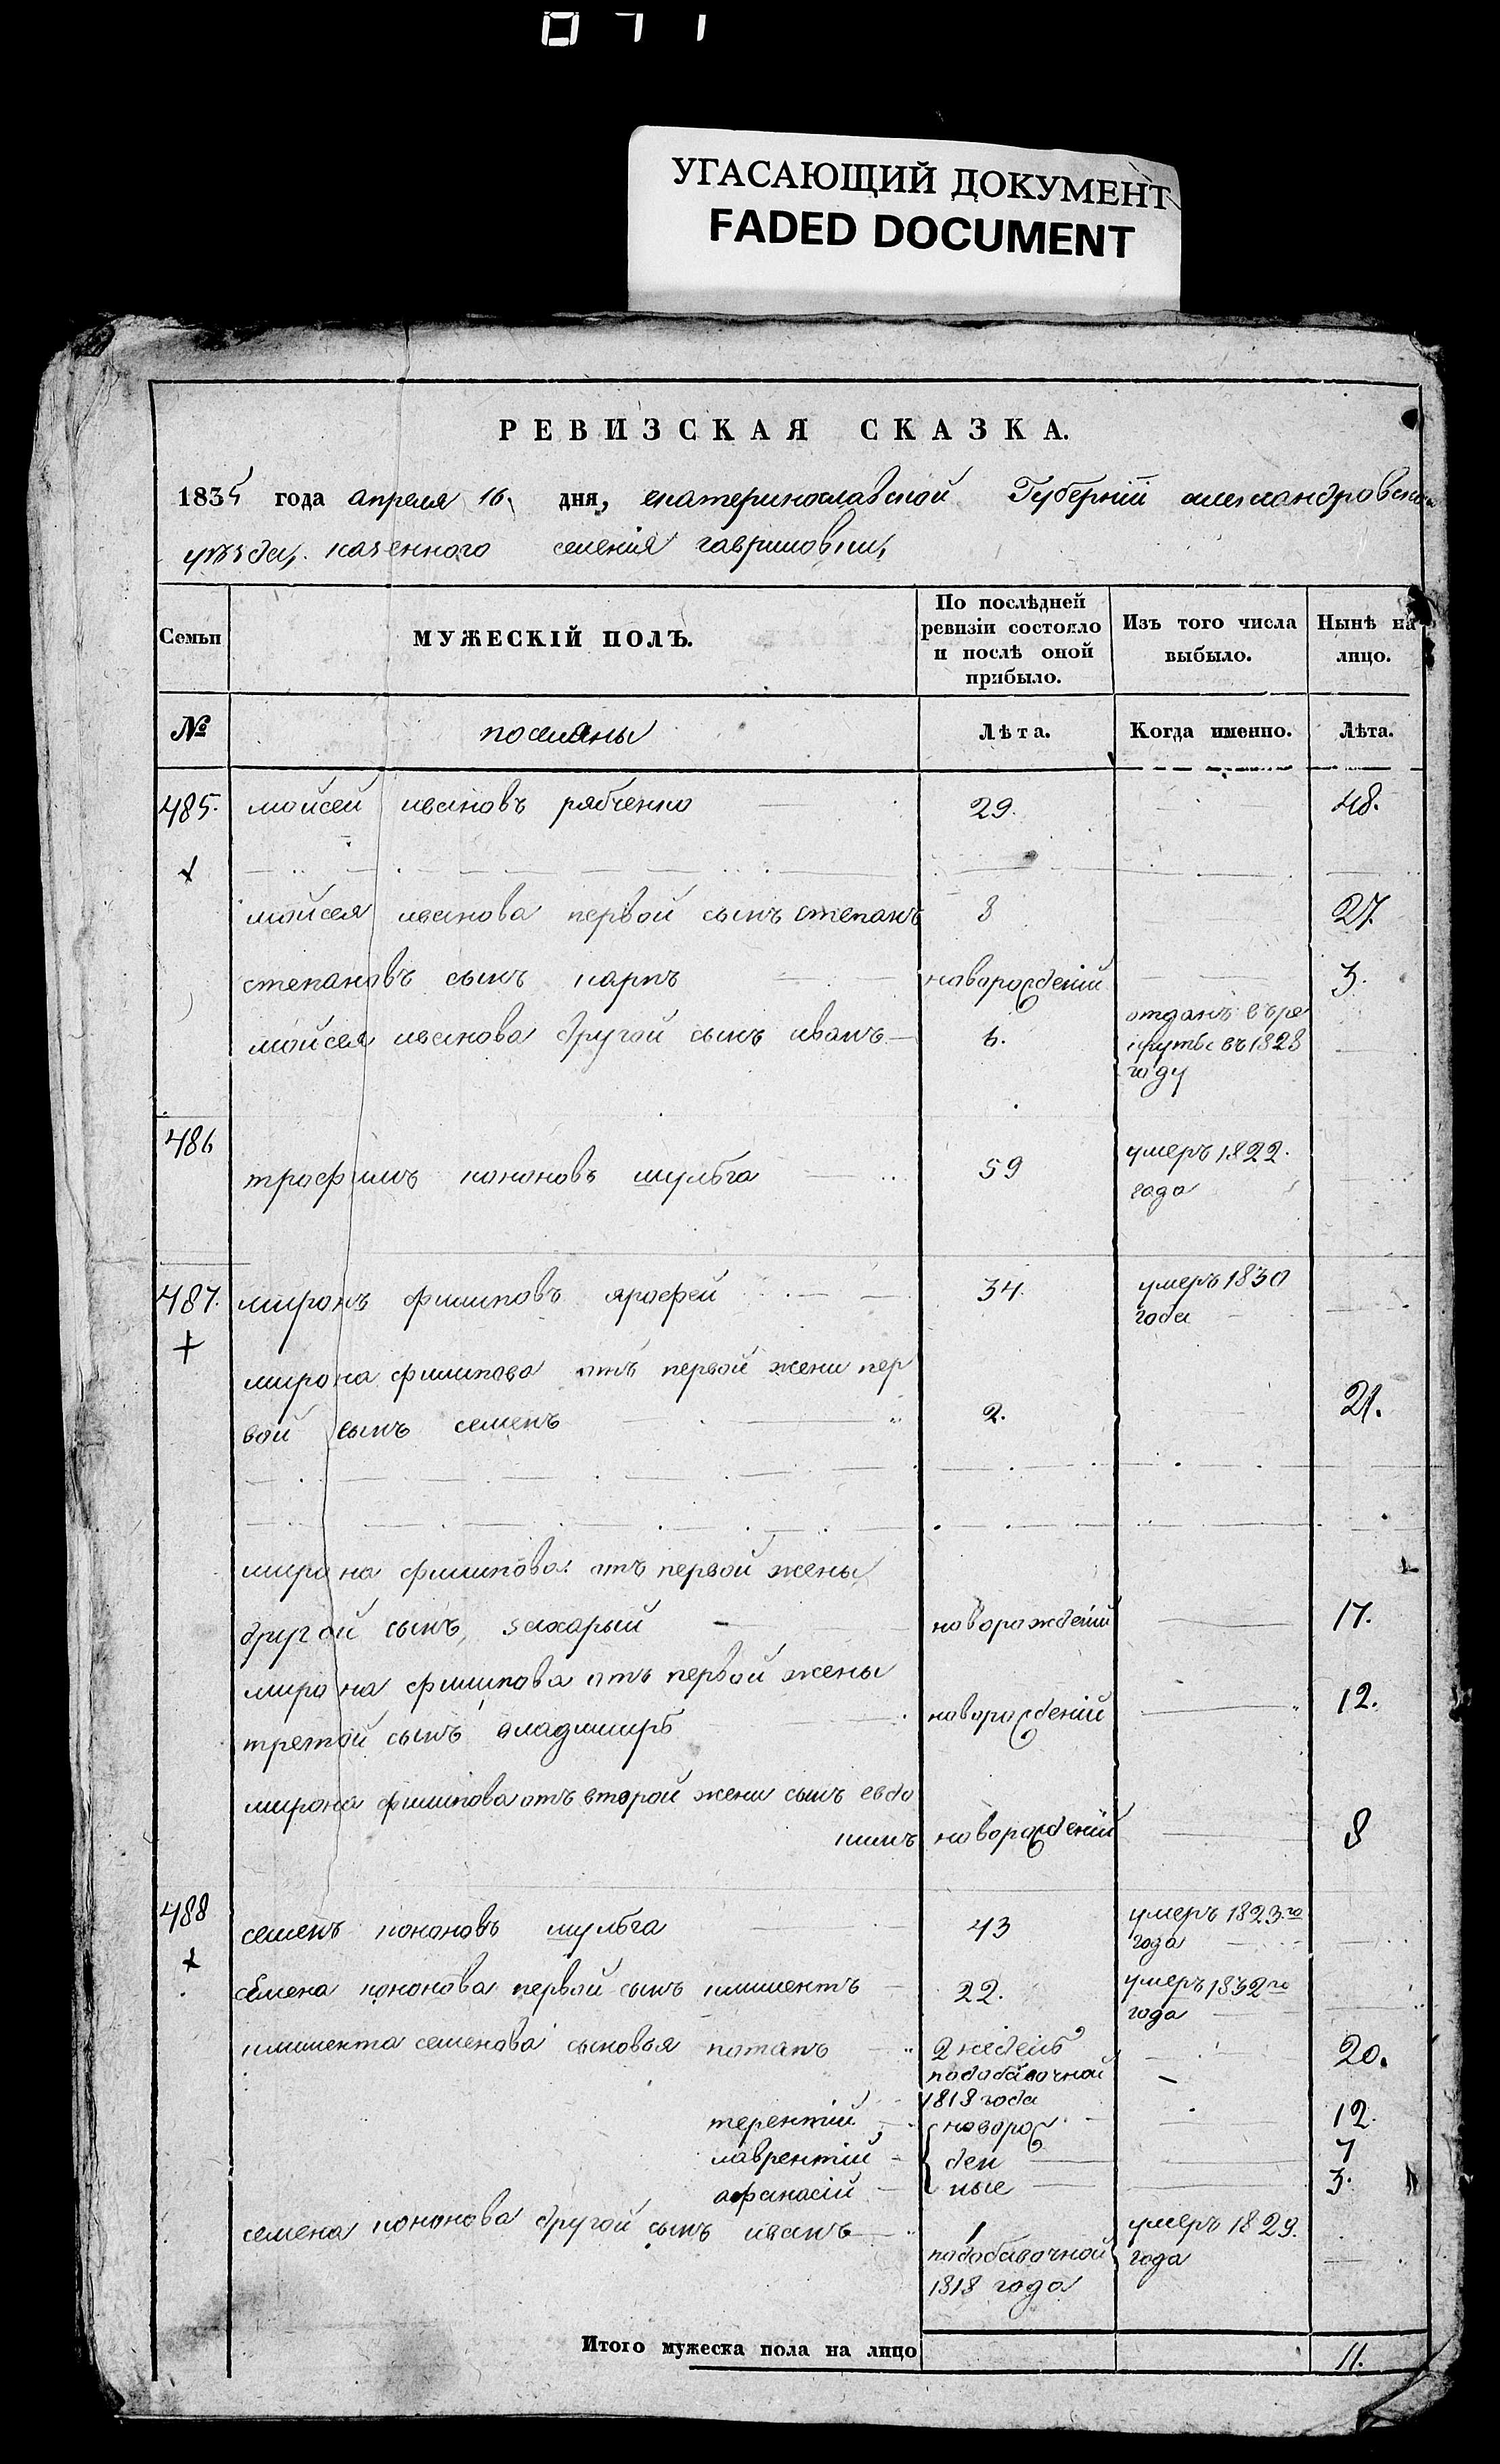 УГАСАЮЩИЙ ДОКУМЕНТ
FADED DOCUMENT
РЕВИЗСКАЯ СКАЗКА.
1835 года апреля 16 дня, екатеринославской Губерніи александровска
уѣзда, казенного селенія гавриловки,
Семьи
МУЖЕСКІЙ ПОЛЪ.
По послѣдней ревизіи состояло и послѣ оной прибыло.
Изъ того числа выбыло.
Нынѣ на лицо.
№ поселяны Лѣта. Когда именно. Лѣта.
485. мойсей ивановъ рябченко 29. 48.
мойсея иванова первой сынъ степанъ 8 27.
степановъ сынъ карпъ новорожденій 3.
мойсея иванова другой сынъ иванъ 6. отданъ въ ре
круты въ 1828
году
486
трофимъ кононовъ шульга 59 умеръ 1822.
года
487. миронъ филиповъ ярофей 34. умеръ 1830
года
мирона филипова отъ первой жени пер
вой сынъ семенъ 2. 21.
мирона филипова отъ первой жены
другой сынъ, захарый новорожденій 17.
мирона филипова отъ первой жены
третой сынъ владимиръ новорожденій 12.
мирона филипова отъ второй жени сынъ евдо
кимъ новорожденій 8
488
семенъ кононовъ шульга 43 умеръ 1823го
года
семена кононова первой сынъ климентъ 22. умеръ 1832го
года
климента семенова сыновья потапъ 2 недель 20.
подобавочной
1818 года
терентій новорож 12.
лаврентій ден 7
афанасій ные 3.
семена кононова другой сынъ иванъ 1 умеръ 1829.
подобавочной года
1818 года
Итого мужеска пола на лицо 11.